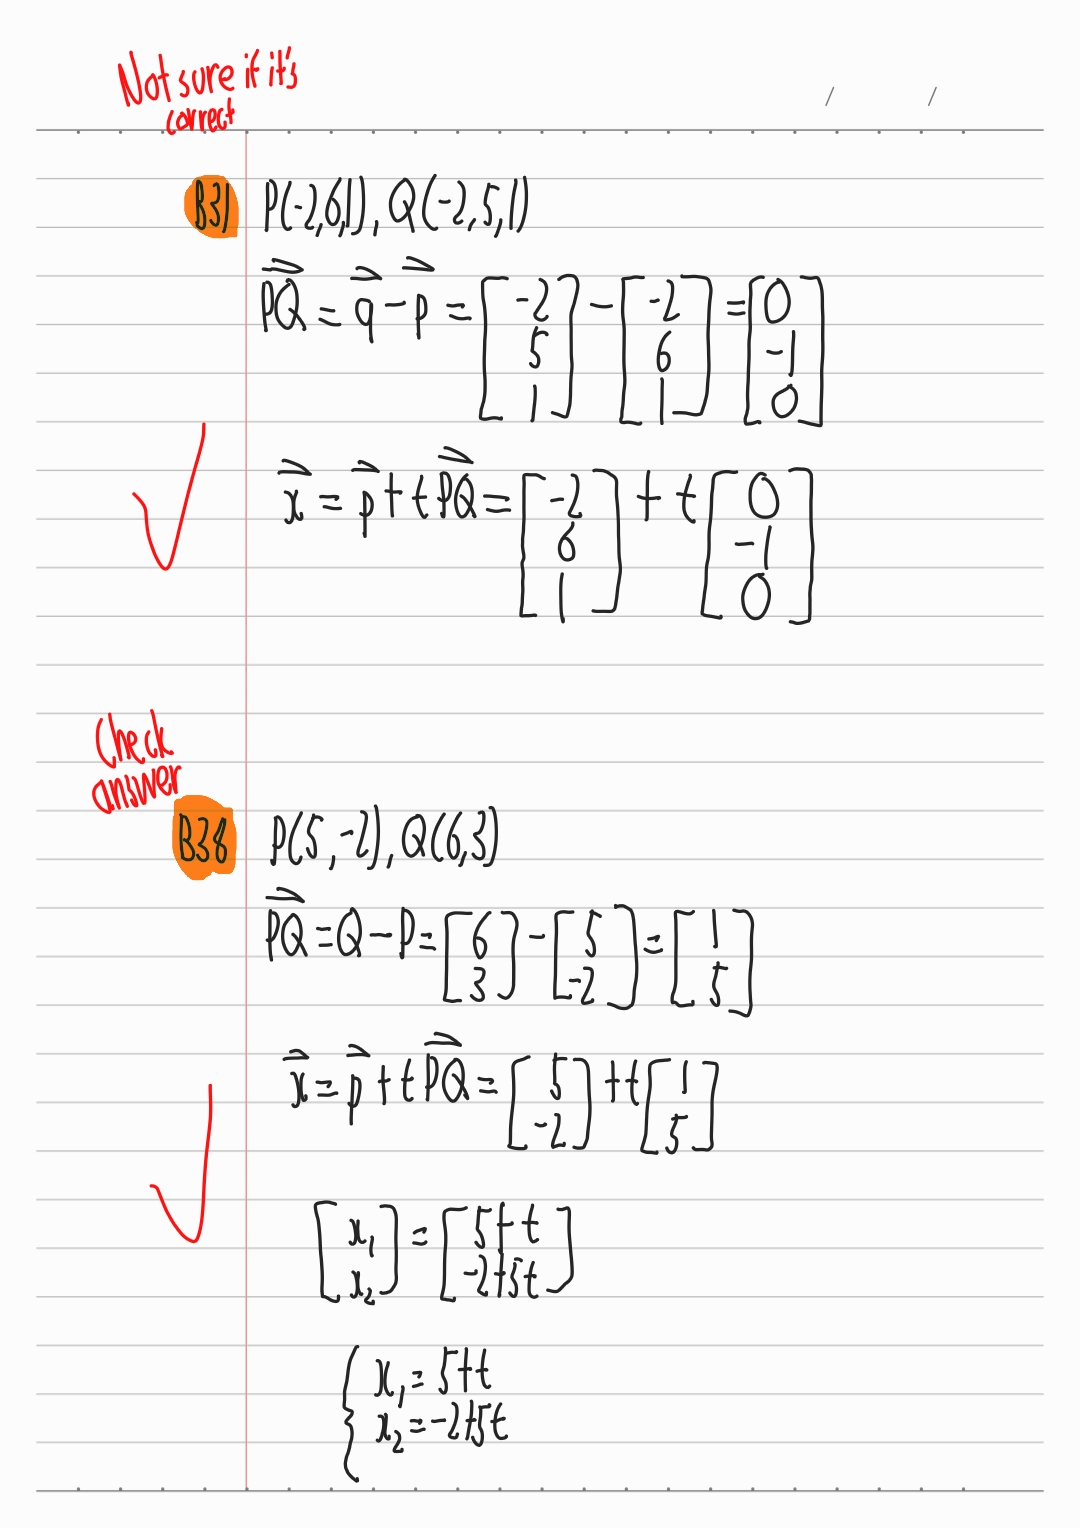 Not sure if it's
correct
/ /
B31 P(-2,6,1), Q(-2,5,1)
PQ⃗ = q⃗ - p⃗ = [-2 5 1] - [-2 6 1] = [0 -1 0]
x⃗ = p⃗ + t PQ⃗ = [-2 6 1] + t [0 -1 0]
Check
answer
B38 P(5,-2), Q(6,3)
PQ⃗ = Q - P = [6 3] - [5 -2] = [1 5]
x⃗ = p⃗ + t PQ⃗ = [5 -2] + t [1 5]
[x₁ x₂] = [5+t -2+5t]
{ x₁ = 5+t
x₂ = -2+5t